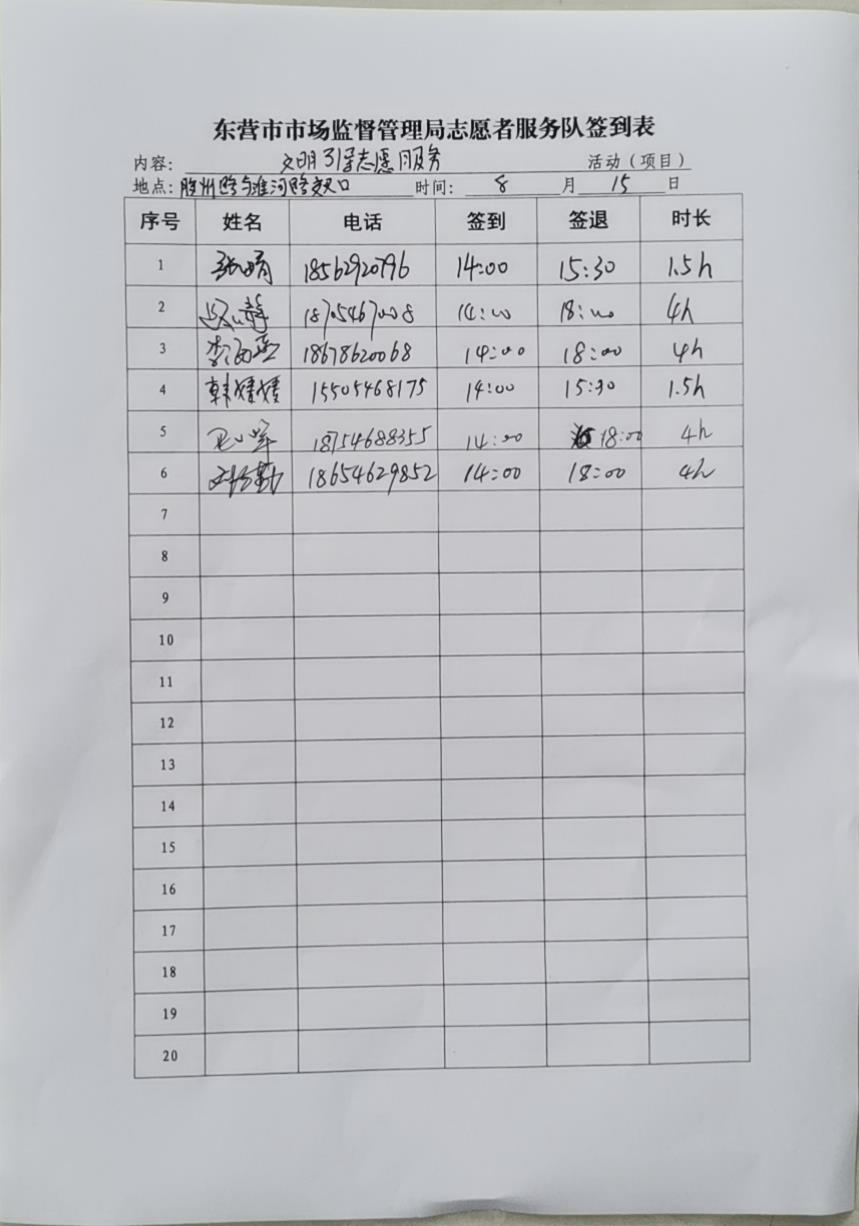 东营市市场监督管理局志愿者服务队签到表
内容: 文明引导志愿服务 活动（项目）
地点: 胶州路与淮河路交叉口 时间: 8 月 15 日
序号 姓名 电话 签到 签退 时长
1 张晴 18562920796 14:00 15:30 1.5h
2 静 18705467008 14:00 18:00 4h
3 李 18678620068 14:00 18:00 4h
4 韩媛媛 15505468175 14:00 15:30 1.5h
5 18754688355 14:00 18:00 4h
6 勤 18654629852 14:00 18:00 4h
7
8
9
10
11
12
13
14
15
16
17
18
19
20